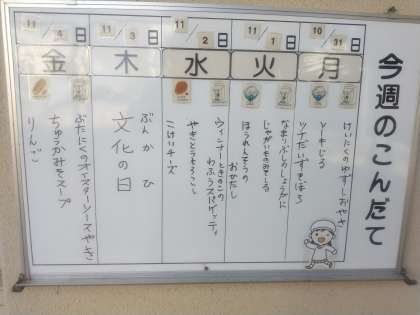 今週のこんだて
10/31日
月
けいにくのゆずしおやき
ツナだいずきぼろ
11/1日
火
なまりぶしのしょうがに
じゃがいものみそしる
ほうれんそうの
おかだし
11/2日
水
ウィンナーときのこの
わふうスパゲッティ
やきとうもろこし
こけいチーズ
11/3日
木
ぶんかひ
文化の日
11/4日
金
ぶたにくのオイスターソースやき
ちゅうかみそスープ
りんご